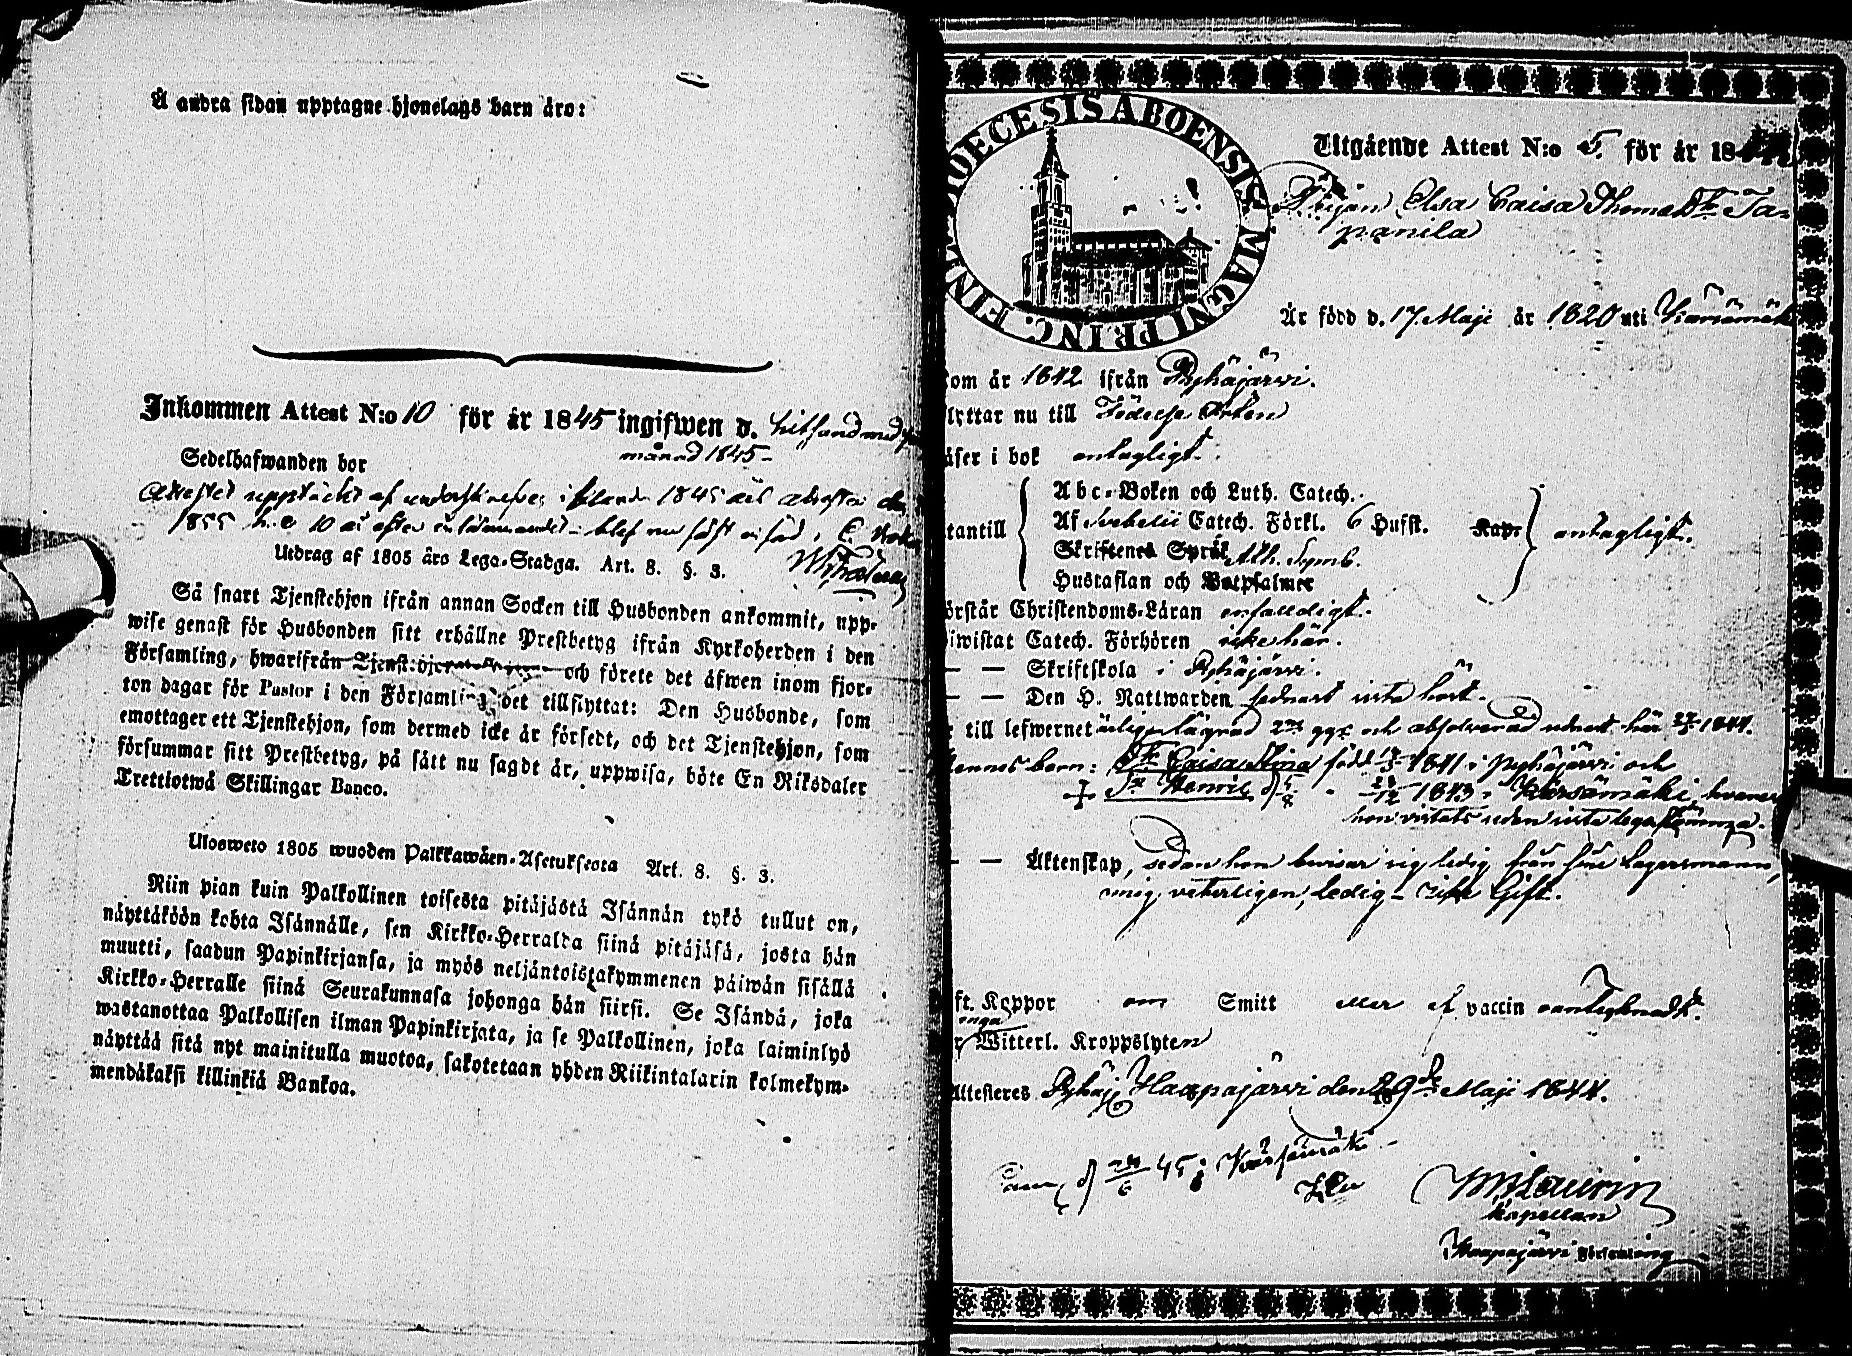 Å andra sidan upptagne hjonelags barn äro:
Inkommen Attest N:o 10 för år 1845 ingifwen d.
månad 1845 -
Sedelhafwanden bor
1845
1855 10 år efter
Utdrag af 1805 års Lego-Stadga. Art. 8. §. 3.
Så snart Tjenstehjon ifrån annan Socken till Husbonden ankommit, upp-
wise genast för Husbonden sitt erhållne Prestbetyg ifrån Kyrkoherden i den
Församling, hwarifrån Tjenstehjonet och förete det äfwen inom fjor-
ton dagar för Pastor i den Församling det tillflyttat: Den Husbonde, som
emottager ett Tjenstehjon, som dermed icke är försedt, och det Tjenstehjon, som
försummar sitt Prestbetyg, på sätt nu sagdt är, uppwisa, böte En Riksdaler
Trettiotwå Skillingar Banco.
Ulosweto 1805 wuoden Palkkawäen-Asetuksesta Art. 8. §. 3.
Niin pian kuin Palkollinen toisesta pitäjästä Isännän tykö tullut on,
näyttäköön kohta Isännälle, sen Kirkko-Herralda siinä pitäjäsä, josta hän
muutti, saadun Papinkirjansa, ja myös neljäntoistakymmenen päiwän sisällä
Kirkko-Herralle siinä Seurakunnasa johonga hän siirsi. Se Isändä, joka
wastanottaa Palkollisen ilman Papinkirjata, ja se Palkollinen, joka laiminlyö
näyttää sitä nyt mainitulla muotoa, sakotetaan yhden Riikintalarin kolmekym-
mendäkaksi killinkiä Bankoa.
DIOECESIS ABOENSIS MAGNI PRINC. FINL.
Utgående Attest N:o 5. för år 1844
Pigan Elsa Caisa Thomasdr Ta-
panila
Är född d. 17 Maji år 1820 uti Kärsämäki
om år 1842 ifrån Pyhäjärvi.
lyttar nu till Födelse Orten
äser i bok antagligt.
Abc-Boken och Luth. Catech.
Af Svebelii Catech. Förkl. 6 Hufst. Kap.
tantill antagligt.
Skriftenes Språk Ath. Symb.
Hustaflan och Botpsalmer
örstår Christendoms-Läran enfaldigt.
iwistat Catech. Förhören icke här.
— — Skriftskola i Pyhäjärvi.
— — Den H. Nattwarden sednast sista höst.
till lefwernet lägrad 2ne ggr och absolverad sednast här 1844.
Hennes barn: Dr Caisa Stina född 1841 i Pyhäjärvi och
Sn Henric 1843 i Kärsämäki, hvarest
hon vistats sedan sista legostämma.
— — Äktenskap, sedan hon bevisar sig ledig från sine Lagersmann,
mig veterligen, ledig - icke Gift.
ft. Koppor om Smitt eller af vaccin
r Witterl. Kroppslyten
Attesteres Pyhäj. Haapajärvi den 29de Maji 1844.
d 24/6 45 i Kärsämäki -
Kapellan
Haapajärvi Församling